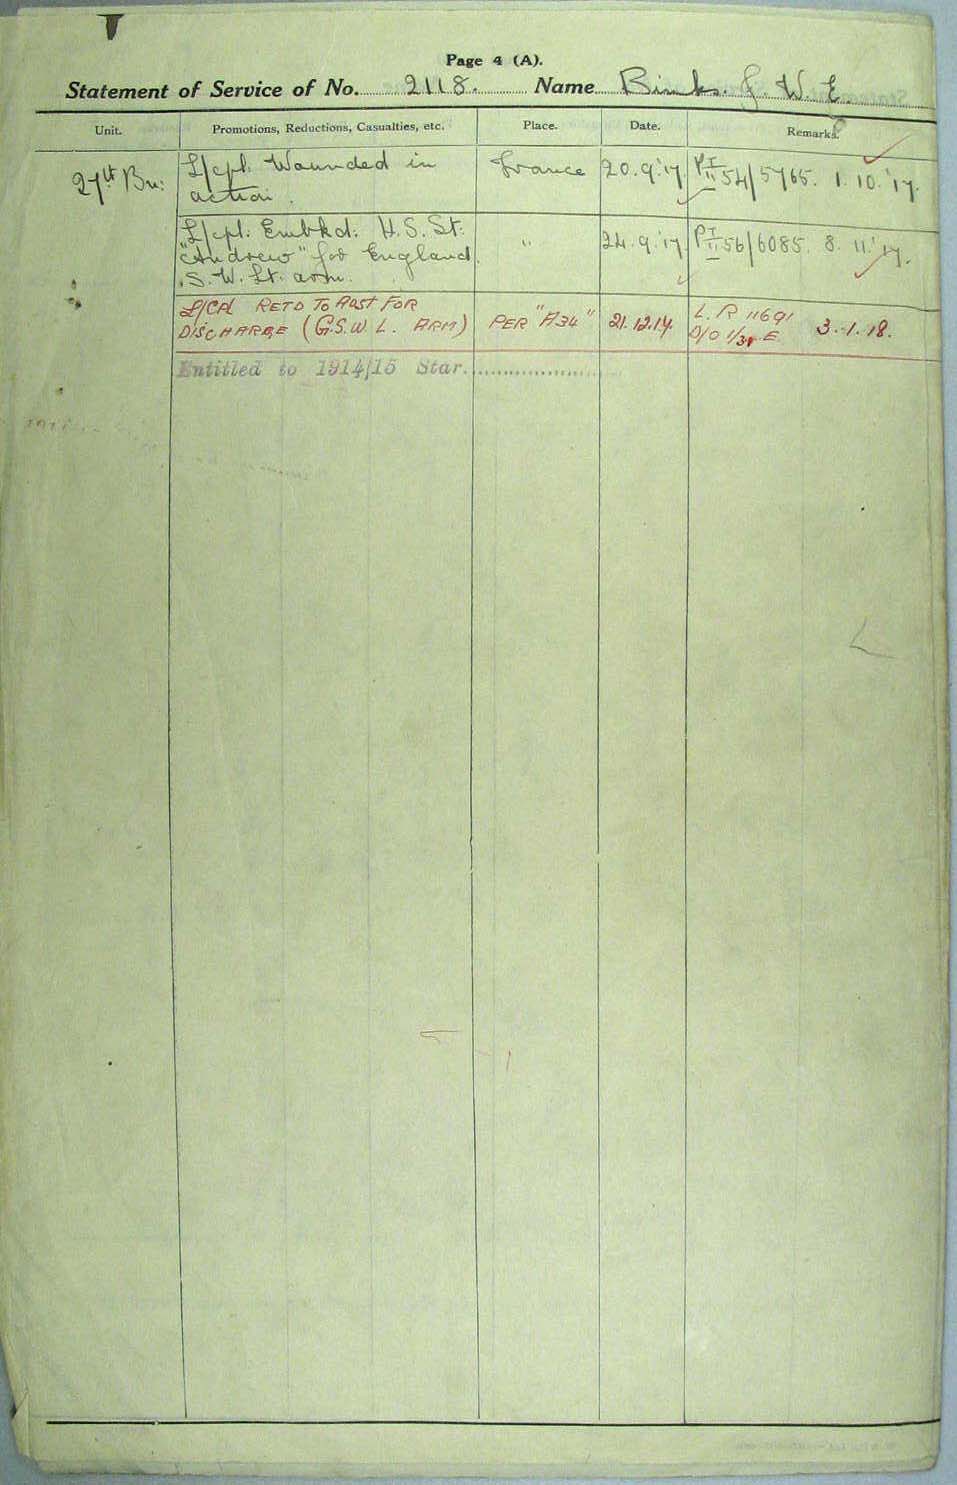 Page 4 (A).
Statement of Service of No. 2118. Name Binks. J. W. E.
Unit. Promotions, Reductions, Casualties, etc. Place. Date. Remarks.
27th Bn: L/cpl. Wounded in France 20.9.'17 54/5765. 1.10.'17.
action.
L/cpl: Embkd: H.S. St: " 24.9.'17 56/6085. 8.11.'17.
"Andrew" for England
S.W. Lt. arm.
L/CPL RETD TO AUST FOR PER "A34" 21.12.17. L.R 11691 3.1.18.
DISCHARGE (G.S.W L. ARM) D/O
Entitled to 1914/15 Star.